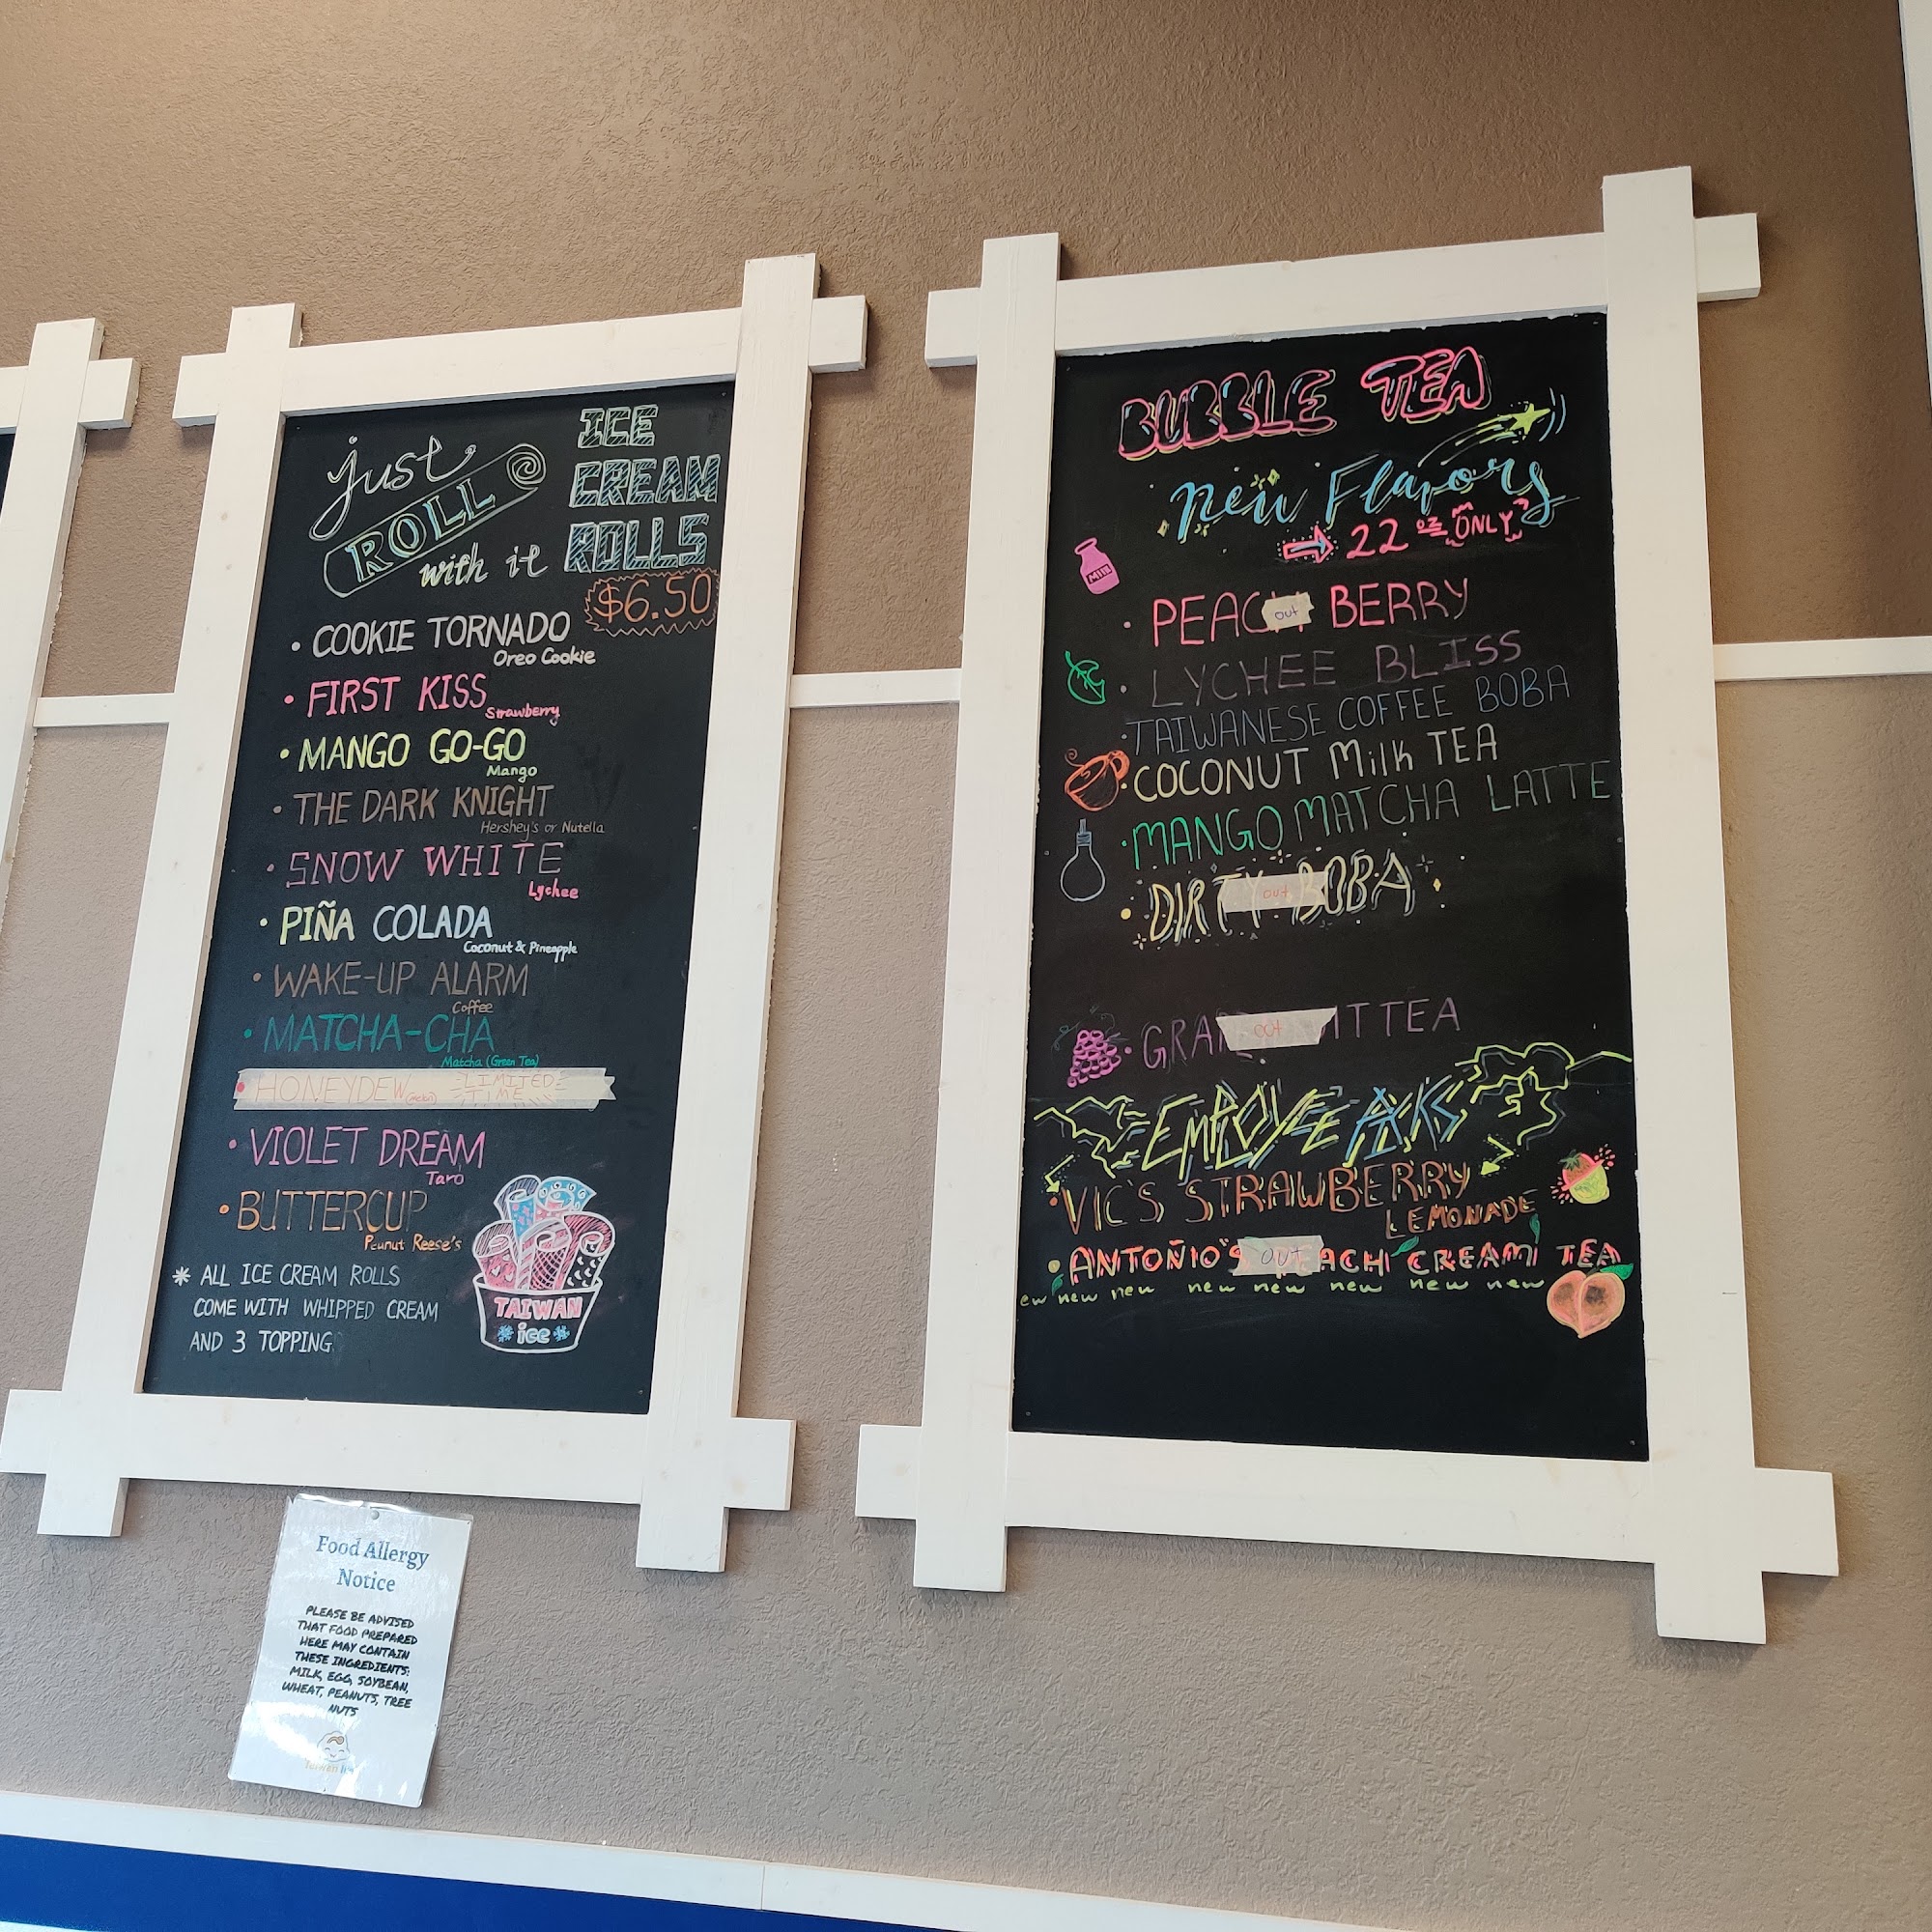 just
ROLL
with it
ICE
CREAM
ROLLS
$6.50
• COOKIE TORNADO
Oreo Cookie
• FIRST KISS
Strawberry
• MANGO GO-GO
Mango
• THE DARK KNIGHT
Hershey's or Nutella
• SNOW WHITE
Lychee
• PIÑA COLADA
Coconut & Pineapple
• WAKE-UP ALARM
Coffee
• MATCHA-CHA
Matcha (Green Tea)
• HONEYDEW (melon) LIMITED
TIME
• VIOLET DREAM
Taro
• BUTTERCUP
Peunut Reese's
* ALL ICE CREAM ROLLS
COME WITH WHIPPED CREAM
AND 3 TOPPING
TAIWAN
ice
BUBBLE TEA
New Flavors
22 oz ONLY
MILK
• PEACH out BERRY
• LYCHEE BLISS
• TAIWANESE COFFEE BOBA
• COCONUT Milk TEA
• MANGO MATCHA LATTE
• DIRTY out BOBA
• GRA out IT TEA
EMPLOYEE PICKS
• VIC'S STRAWBERRY
LEMONADE
• ANTOÑIO'S out EACH CREAM TEA
ew new new new new new new new
Food Allergy
Notice
PLEASE BE ADVISED
THAT FOOD PREPARED
HERE MAY CONTAIN
THESE INGREDIENTS:
MILK, EGG, SOYBEAN,
WHEAT, PEANUTS, TREE
NUTS
Taiwan Ice